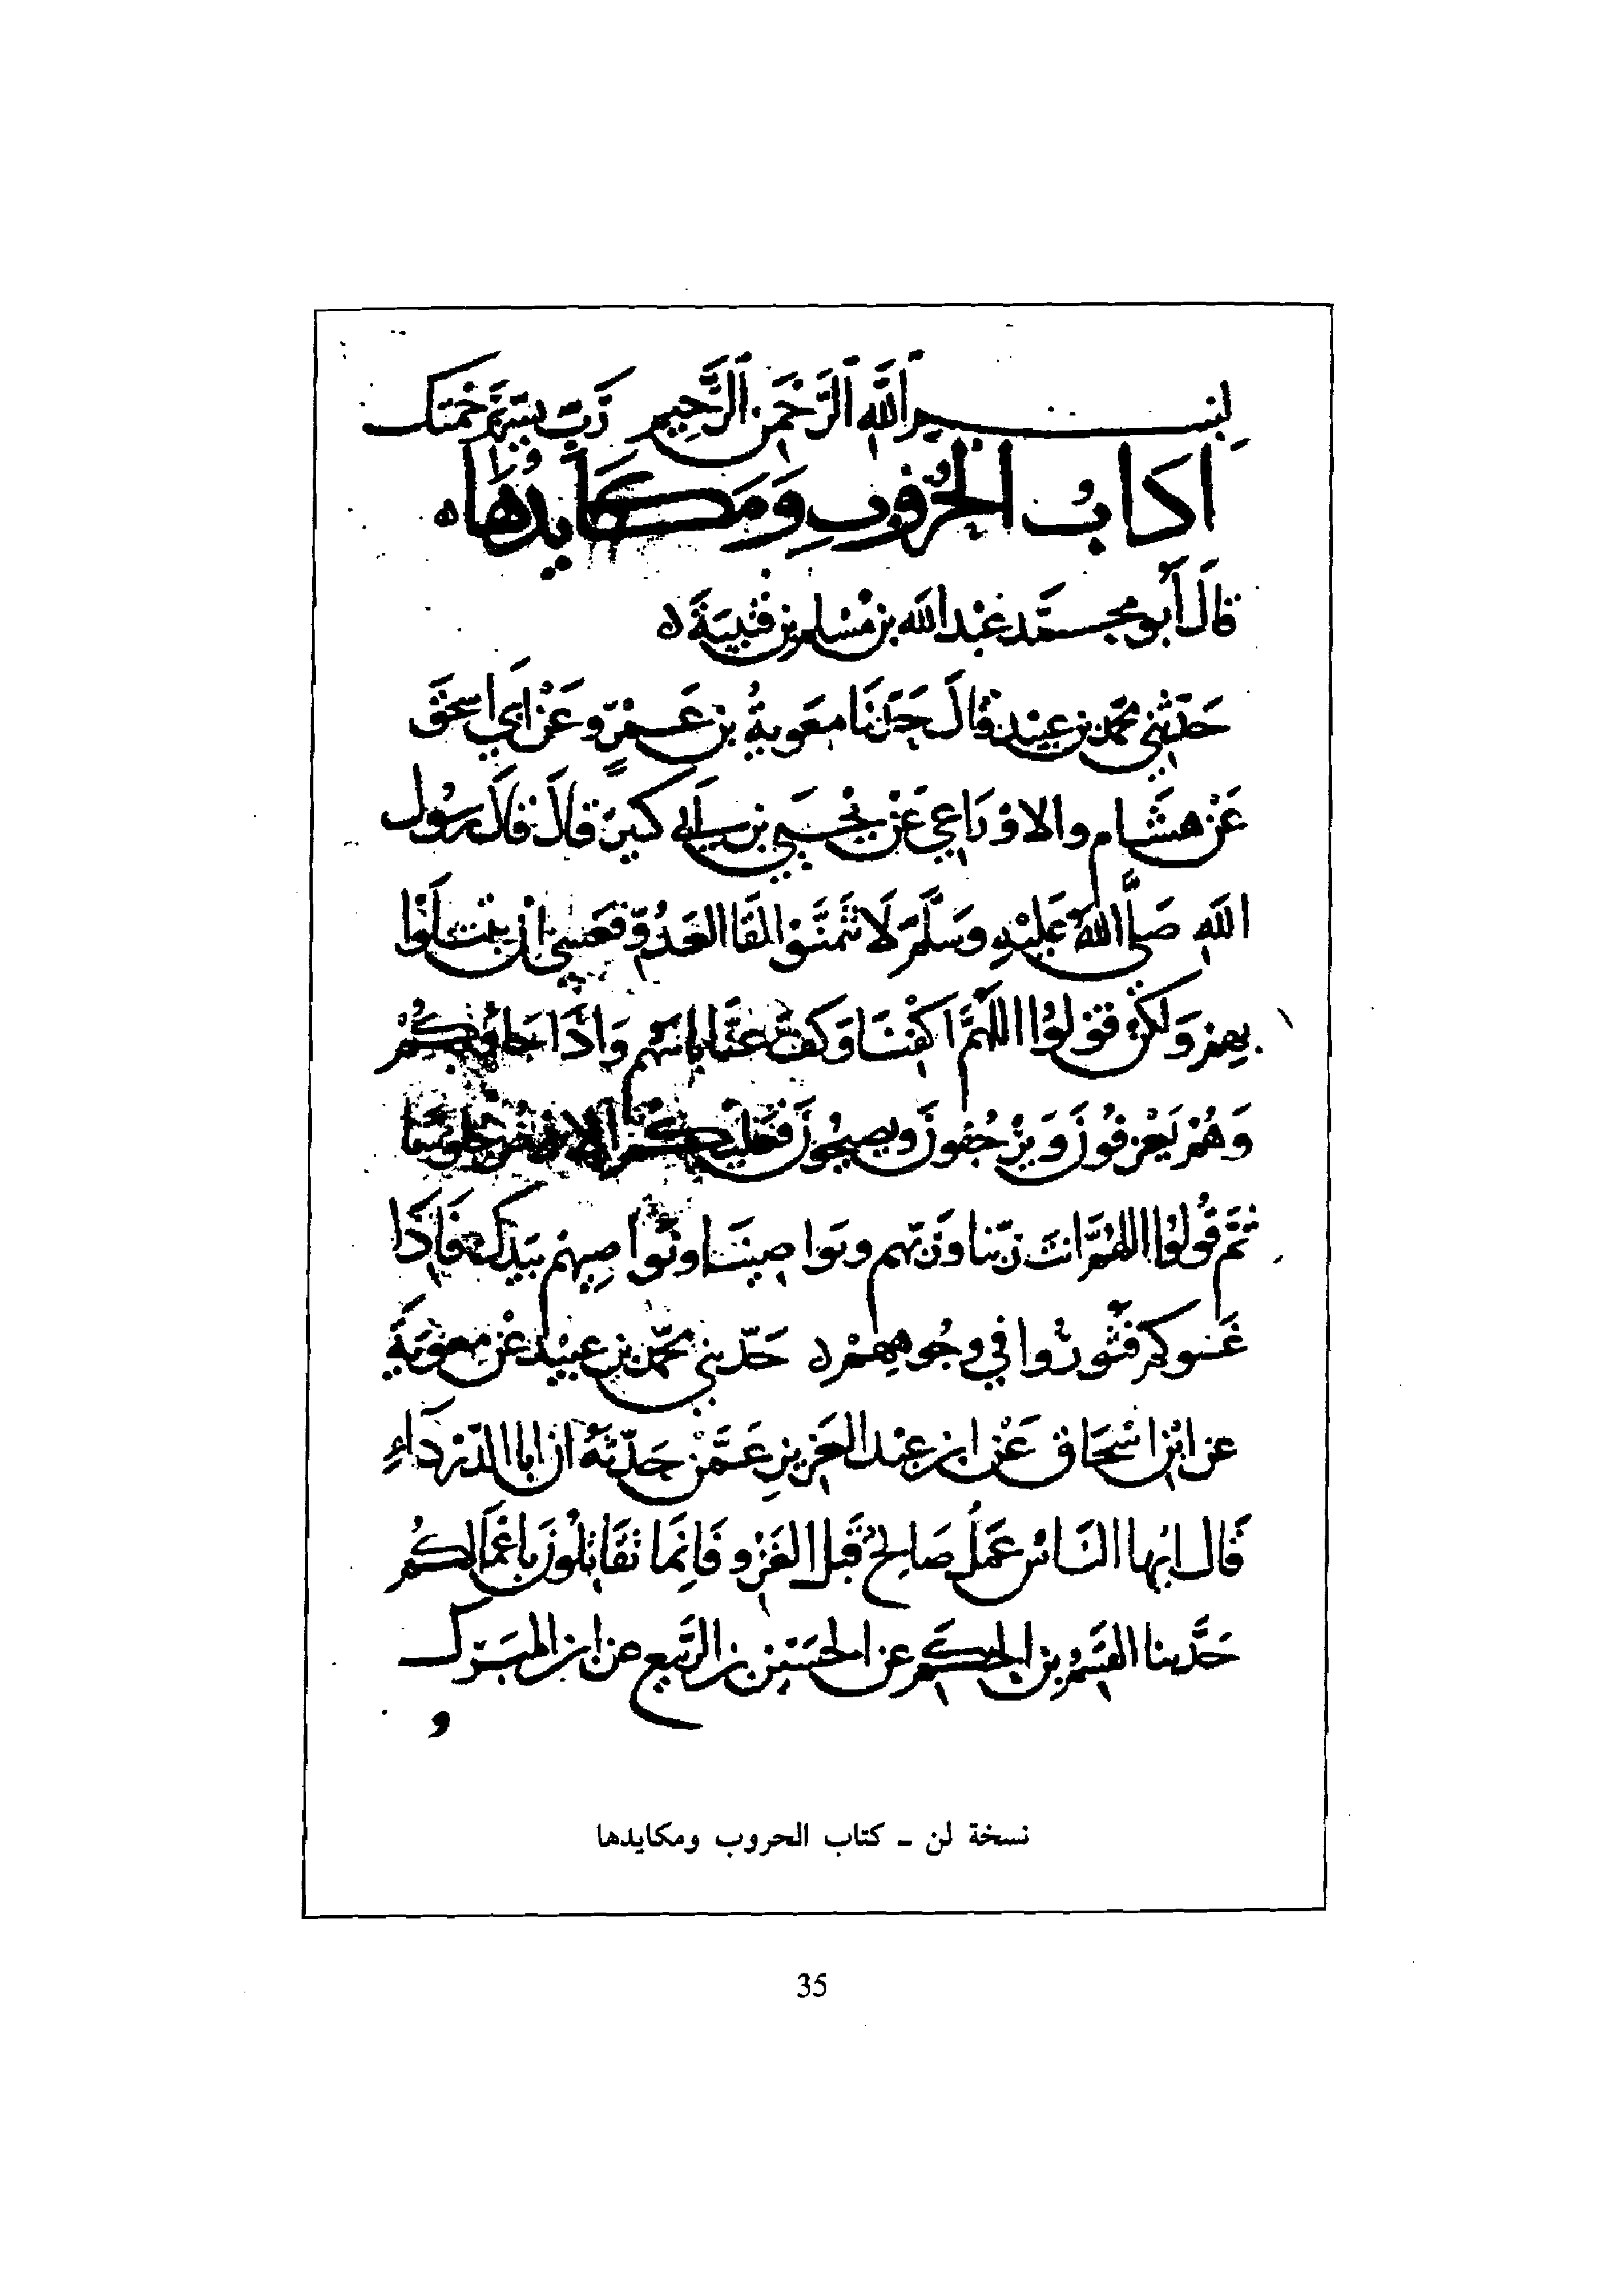 بسم الله الرحمن الرحيم رب يسر برحمتك
اداب الحروب ومكايدها ه
قال أبو محمد عبد الله بن مسلم بن قتيبة ه
حدثني محمد بن عبيد قال حدثنا معوية بن عمرو عن أبي اسحق
عن هشام والاوزاعي عن يحيى بن أبي كثير قال قال رسول
الله صلى الله عليه وسلم لا تمنوا لقا العدو فعسى ان تبتلوا
بهم ولكن قولوا اللهم اكفنا وكف عنا باسهم واذا جاؤكم
وهم يعزفون ويزحفون ويصيحون فعليكم الارض جلوسا
ثم قولوا اللهم انت ربنا وربهم ونواصينا ونواصيهم بيدك فاذا
غشوكم فثوروا في وجوههم ه حدثني محمد بن عبيد عن معوية
عن ابن اسحاق عن ابن عبد العزيز عمن حدثه ان ابا الدرداء
قال ايها الناس عمل صالح قبل الغزو فانما تقاتلون باعمالكم
حدثنا القسم بن الحكم عن الحسن بن الربيع عن ابن المبرك
و
نسخة لن ـ كتاب الحروب ومكايدها
35